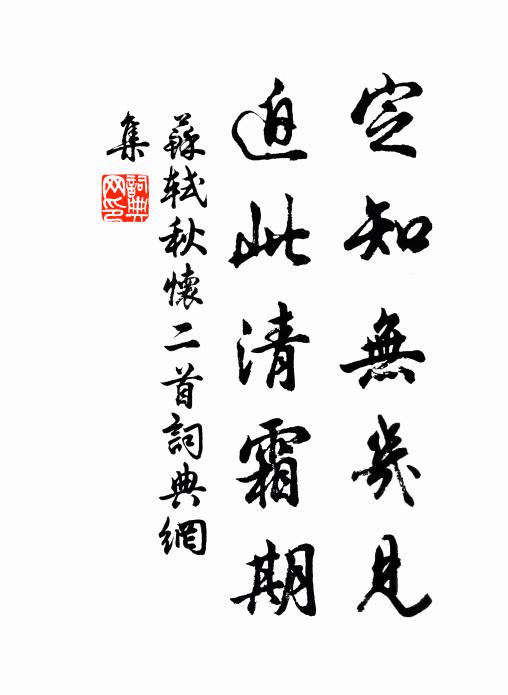 定知無幾見
迫此清霜期
蘇軾秋懷二首詞典網
集
詞典
网印